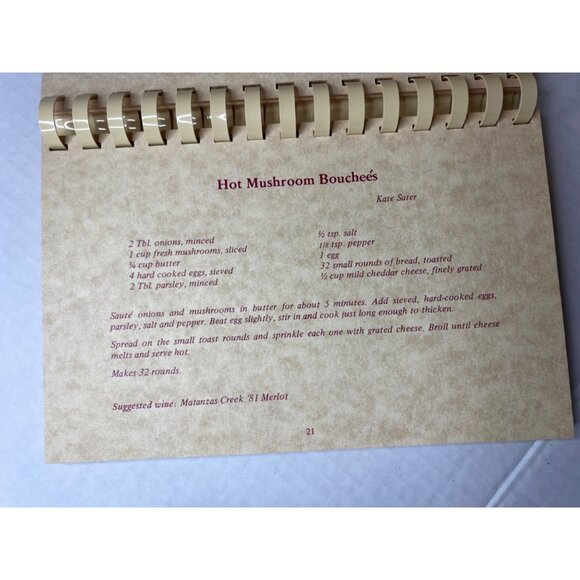 Hot Mushroom Boucheés
Kate Sater
2 Tbl. onions, minced
1 cup fresh mushrooms, sliced
¼ cup butter
4 hard cooked eggs, sieved
2 Tbl. parsley, minced
½ tsp. salt
1/8 tsp. pepper
1 egg
32 small rounds of bread, toasted
½ cup mild cheddar cheese, finely grated
Sauté onions and mushrooms in butter for about 5 minutes. Add sieved, hard-cooked eggs,
parsley, salt and pepper. Beat egg slightly, stir in and cook just long enough to thicken.
Spread on the small toast rounds and sprinkle each one with grated cheese. Broil until cheese
melts and serve hot.
Makes 32 rounds.
Suggested wine: Matanzas Creek '81 Merlot
21